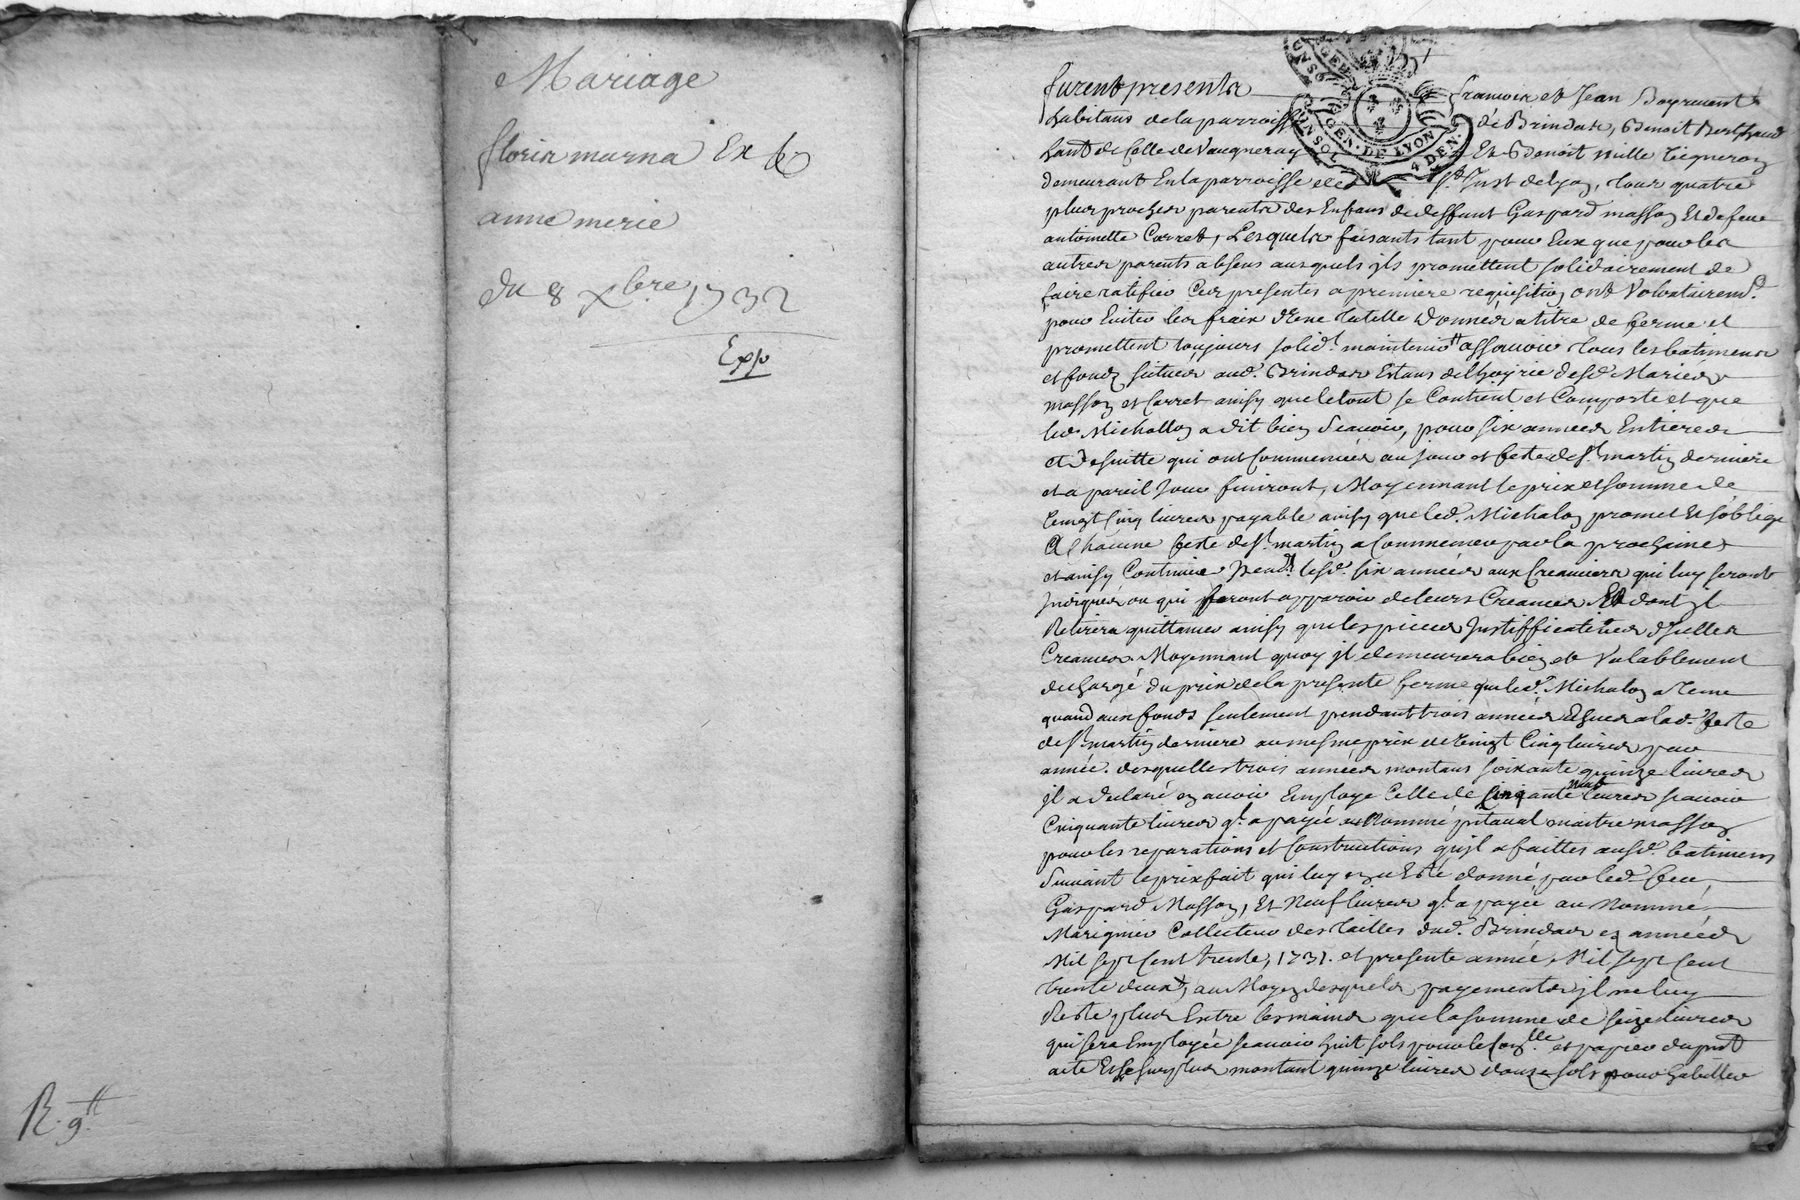 Mariage
floris murna Ex &
anne merie
du 8 xbre 1732
Exp
R. 9.tt
furent presents francois et Jean
habitans de la parroisse de Brindas, Benoit Berthaud
hant de Celle de Vaugneray Et Benoit mille vigneron
demeurant En la parroisse de St. Just de lyon, tous quatre
plus proches parents des Enfans de deffunt Gaspard masson Et de feue
antoinette Carret, Lesquels faisants tant pour Eux que pour les
autres parents absens ausquels jls promettent solidairement de
faire ratifier Ces presentes a premiere requisition ont Volontairemt.
pour Eviter les fraix d'Une Tutelle Donnés a titre de ferme et
promettent toujours solidt. maintenir assavoir tous les batimens
et fonds situés aud. Brindas Estans de lhoyrie desd. Mariés
masson et Carret ainsy que le tout se Contient et Comporte et que
led. Michallon a dit bien Scavoir, pour six années Entieres
et de suitte qui ont Commencées au jour et feste de St. martin derniere
et a pareil Jour finiront, Moyennant le prix et somme de
vingt Cinq livres payable ainsy que led. Michalon promet Et soblige
a Chacune feste de St. martin a Commencer par la prochaine
et ainsy Continuer pendt. lesd. six années aux Creanciers qui luy seront
Indiqués ou qui feront apparoir de leurs Creances Et dont jl
Retirera quittances ainsy que les pieces Justifficatives d'jcelles
Creances. Moyennant quoy jl demeurera bien et Valablement
dechargé du prix de la presente ferme que led. Michalon a Tenue
quand aux fonds seulement pendant trois années Echues a lad. feste
de St. martin derniere au mesme prix de vingt Cinq livres par
année. desquelles trois années montans soixante quinze livres
jl a declaré en avoir Employé Celle de Cinquante neuf livres scavoir
Cinquante livres ql. a payée au Nommé pitaval maitre masson
pour les reparations et Constructions qu'jl a faittes ausd. batimens
Suivant le prixfait qui luy en a Esté donné par led. feu
Gaspard Masson, Et Neuf livres ql. a payée au Nommé
Marignier Collecteur des Tailles dud. Brindas es années
Mil sept Cent trente, 1731. et presente année Mil sept Cent
trente deux, au Moyen desquels payements jl ne luy
Reste plus Entre les mains que la somme de seize livres
qui sera Employée scavoir huit sols pour le Conlle. et papier du pnt
acte Et le surplus montant quinze livres douze sols pour habiller